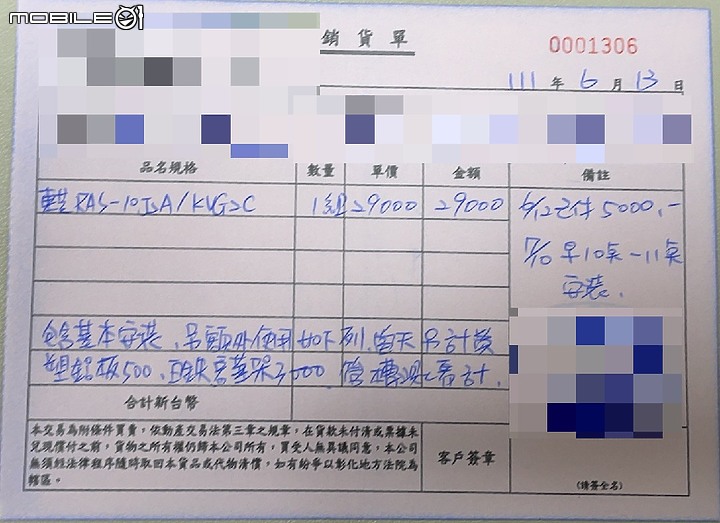 MOBILE01
銷貨單
0001306
111年6月13日
品名規格 數量 單價 金額 備註
東芝RAS-10J2A/KVG2C 1組 29000 29000 6/12已付5000.-
7/10 早10點-11點
安裝.
包含基本安裝, 另額外使用如下列,當天另計價
塑鋁板500, 3000, 管槽現場看計.
合計新台幣
本交易為附條件買賣,依動產交易法第三章之規章,在貨款未付清或票據未
兌現償付之前,貨物之所有權仍歸本公司所有,買受人無異議同意,本公司
無須經法律程序隨時取回本貨品或代物清償,如有紛爭以彰化地方法院為
轄區。
客戶簽章
(請簽全名)